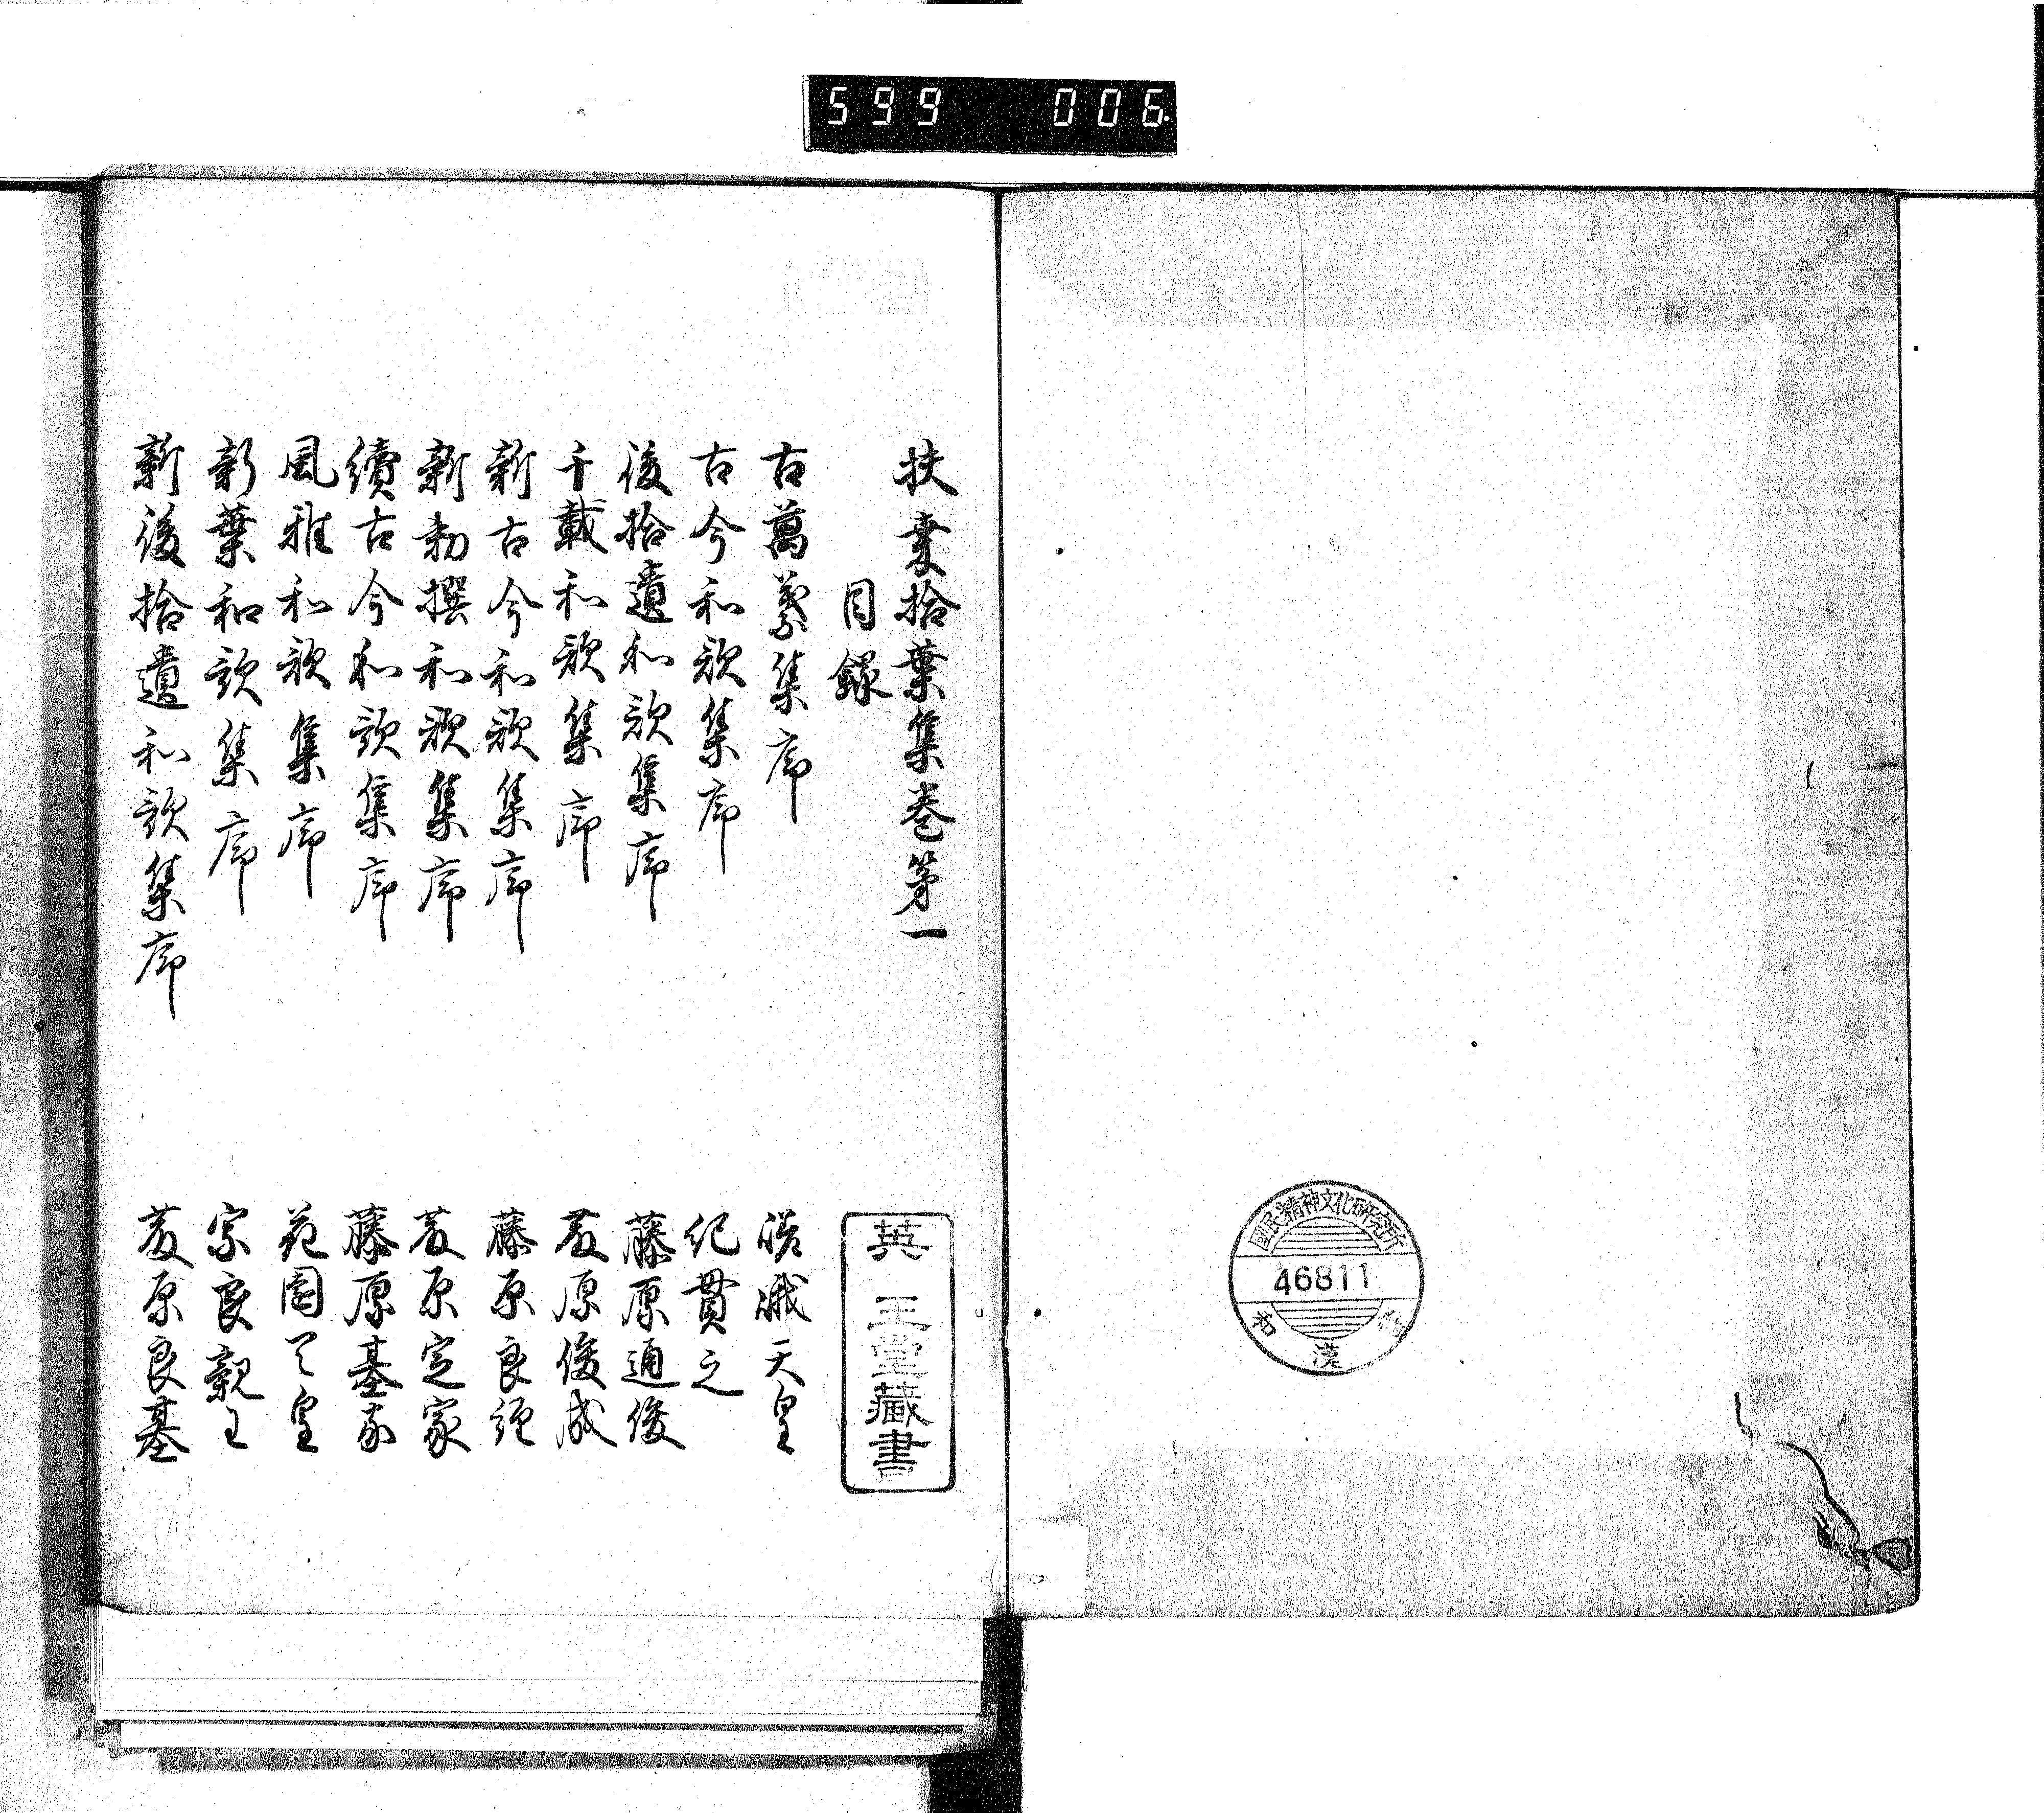 599 006
國民精神文化研究所
46811
和漢
扶桒拾葉集卷第一
目録
古萬葉集序 嵯峨天皇
古今和歌集序 紀貫之
後拾遺和歌集序 藤原通俊
千載和歌集序 藤原俊成
新古今和歌集序 藤原良經
新勅撰和歌集序 藤原定家
續古今和歌集序 藤原基家
風雅和歌集序 花園天皇
新葉和歌集序 宗良親王
新後拾遺和歌集序 藤原良基
英王堂藏書